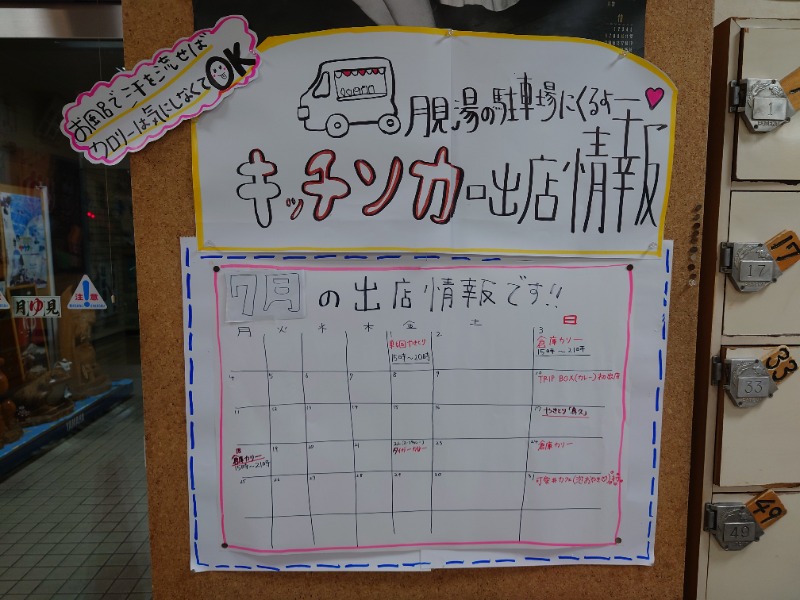 お風呂で汗を流せば
カロリーは気にしなくてOK
月見湯の駐車場にくるよー
キッチンカー出店情報
7月の出店情報です!!
月 火 水 木 金 土 日
1 2 3
15時〜20時
倉庫カレー
15時〜21時
4 5 6 7 8 9 10
TRIP BOX(カレー)初出店
11 12 13 14 15 16 17
やきとり
18 19 20 21 22 23 24
倉庫カレー
15時〜21時
倉庫カレー
25 26 27 28 29 30 31
注意
月ゆ見
1
17
17
33
33
49
49